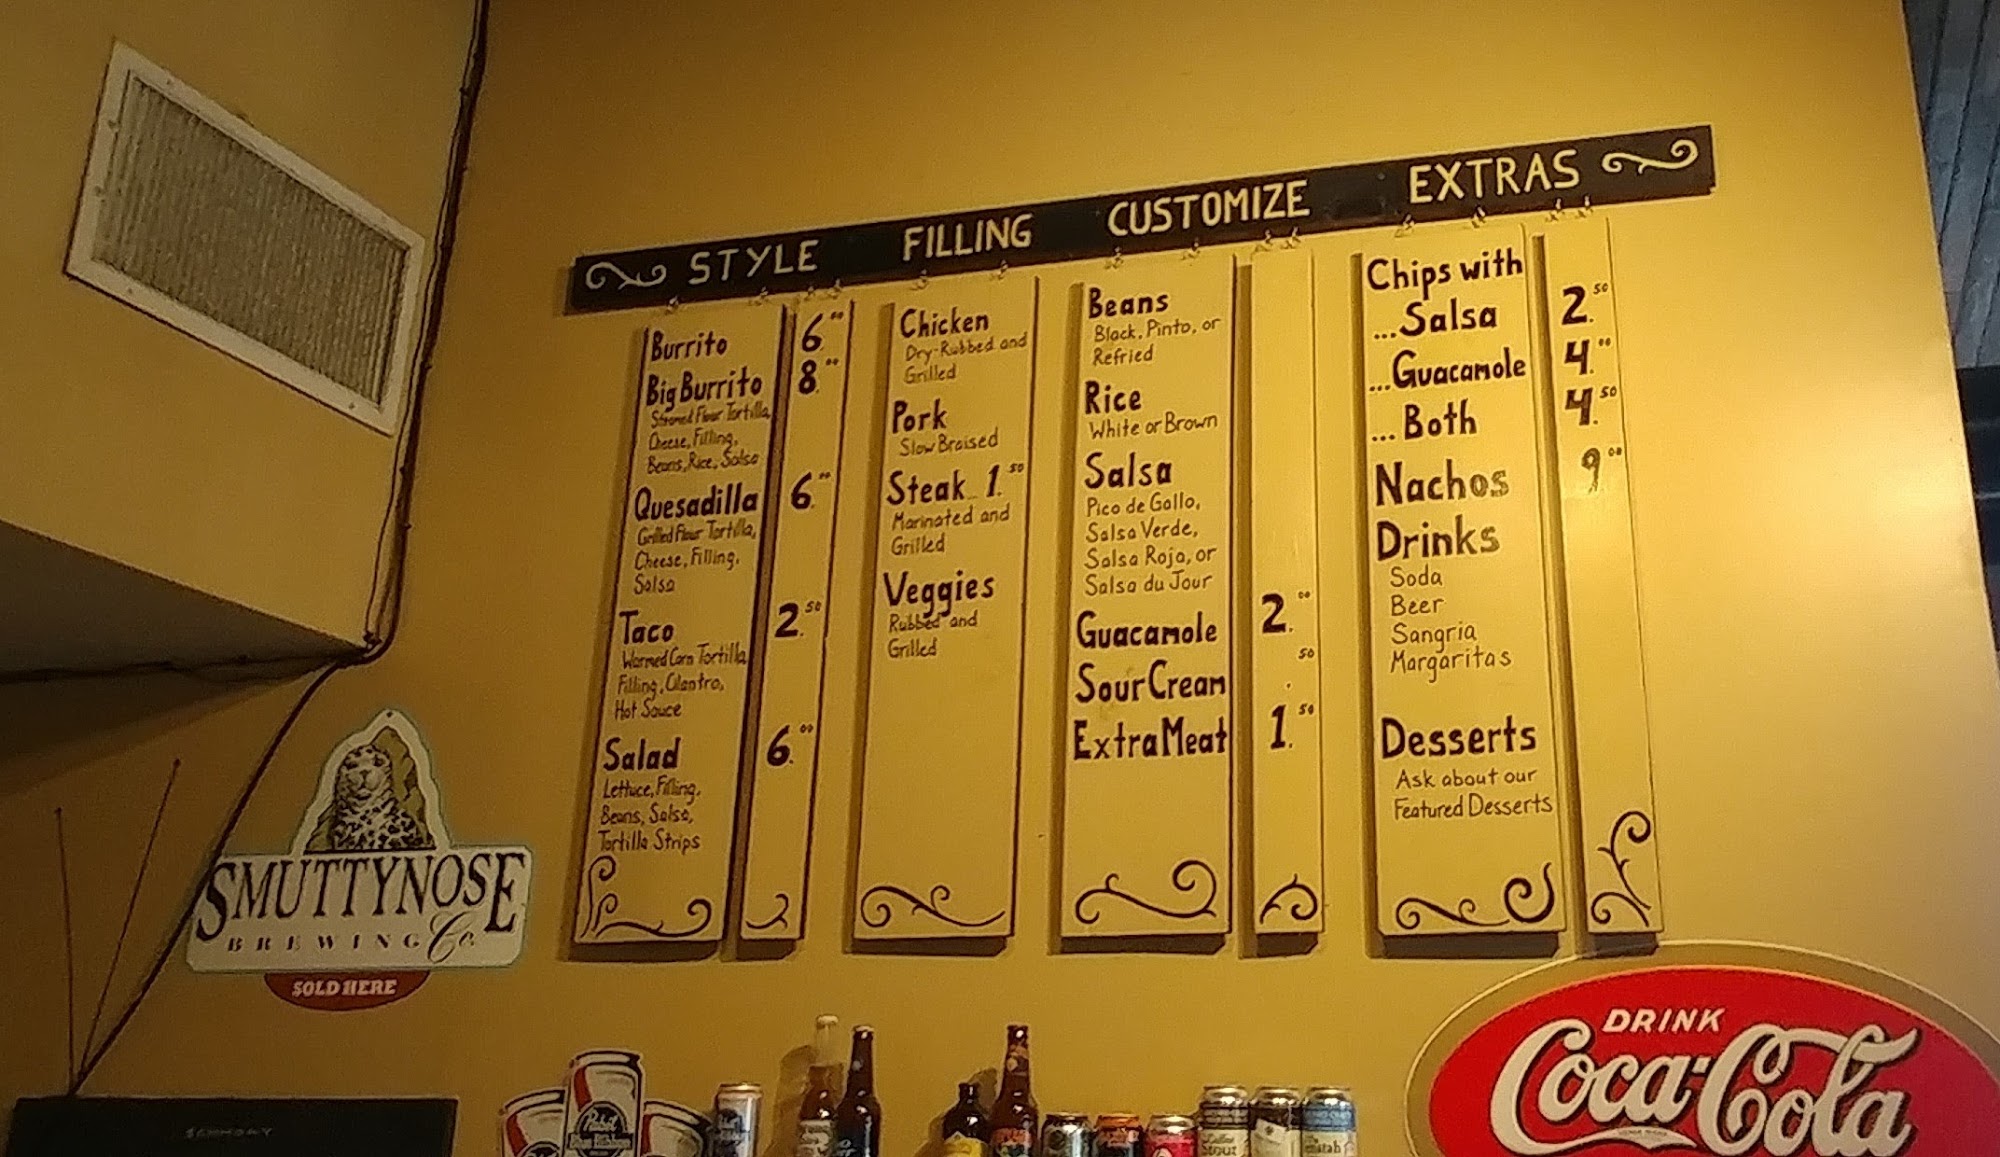 STYLE FILLING CUSTOMIZE EXTRAS
Burrito 6.00
Big Burrito 8.00
Steamed Flour Tortilla,
Cheese, Filling,
Beans, Rice, Salsa
Quesadilla 6.00
Grilled Flour Tortilla,
Cheese, Filling,
Salsa
Taco 2.50
Warmed Corn Tortilla
Filling, Cilantro,
Hot Sauce
Salad 6.00
Lettuce, Filling,
Beans, Salsa,
Tortilla Strips
Chicken
Dry-Rubbed and
Grilled
Pork
Slow Braised
Steak... 1.50
Marinated and
Grilled
Veggies
Rubbed and
Grilled
Beans
Black, Pinto, or
Refried
Rice
White or Brown
Salsa
Pico de Gallo,
Salsa Verde,
Salsa Roja, or
Salsa du Jour
Guacamole 2.00
Sour Cream .50
Extra Meat 1.50
Chips with
...Salsa 2.50
...Guacamole 4.00
...Both 4.50
Nachos 9.00
Drinks
Soda
Beer
Sangria
Margaritas
Desserts
Ask about our
Featured Desserts
SMUTTYNOSE
BREWING Co.
SOLD HERE
DRINK
Coca-Cola
Pabst
Blue Ribbon
Stout